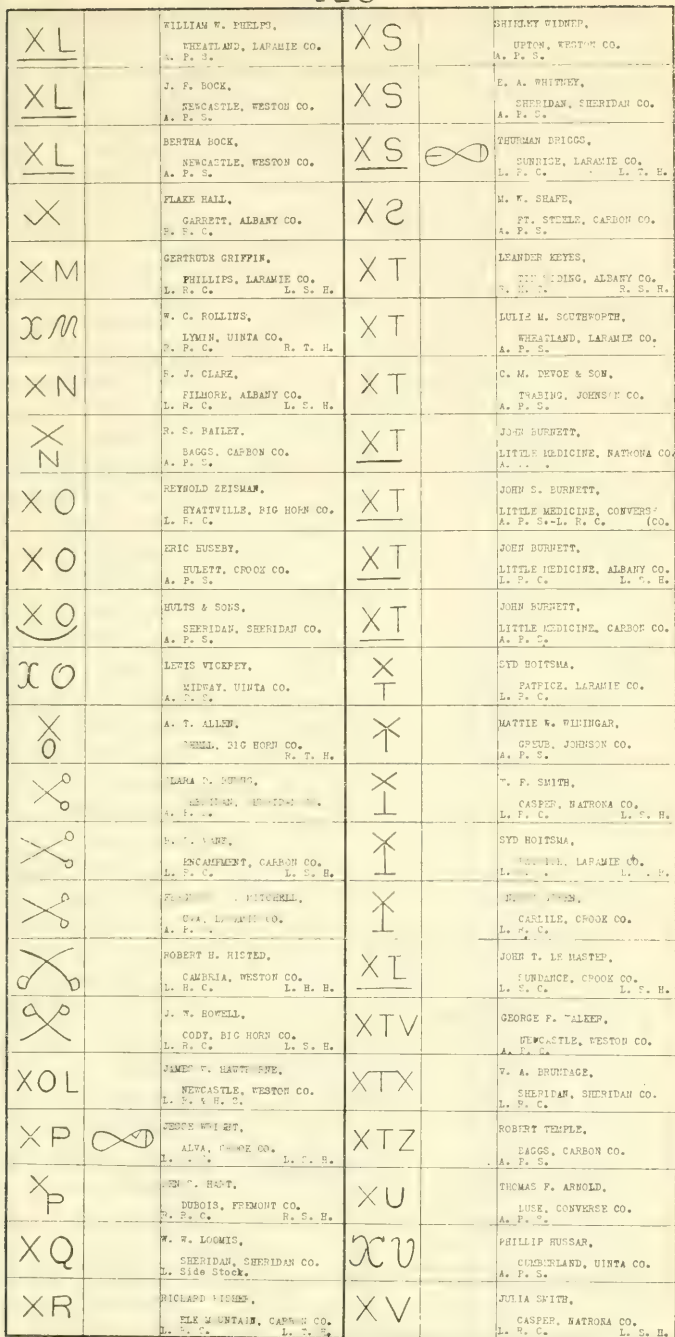 XL
WILLIAM W. PHELPS,
WHEATLAND, LARAMIE CO.
A. P. S.
XL
J. F. BOCK,
NEWCASTLE, WESTON CO.
A. P. S.
XL
BERTHA BOCK,
NEWCASTLE, WESTON CO.
A. P. S.
X
FLAKE HALL,
GARRETT, ALBANY CO.
R. R. C.
XM
GERTRUDE GRIFFIN,
PHILLIPS, LARAMIE CO.
L. R. C. L. S. H.
XM
W. C. ROLLINS,
LYMIN, UINTA CO.
R. T. H.
XN
R. J. CLARK,
FILMORE, ALBANY CO.
L. R. C. L. S. H.
X
N
R. S. BAILEY,
BAGGS, CARBON CO.
A. P. S.
XO
REYNOLD ZEISMAN,
HYATTVILLE, BIG HORN CO.
L. R. C.
XO
ERIC HUSEBY,
HULETT, CROOK CO.
A. P. S.
XO
HULTS & SONS,
SHERIDAN, SHERIDAN CO.
A. P. S.
XO
LEWIS VICKREY,
MIDWAY, UINTA CO.
A. P. S.
X
O
A. T. ALLEN,
SHELL, BIG HORN CO.
R. T. H.
ENCAMPMENT, CARBON CO.
L. R. C. L. S. H.
MITCHELL,
A. P.
ROBERT H. RISTED,
CAMBRIA, WESTON CO.
L. H. C. L. H. H.
J. W. HOWELL,
CODY, BIG HORN CO.
L. R. C. L. S. H.
XOL
JAMES
NEWCASTLE, WESTON CO.
XP
ALVA, CO.
X
P
HART,
DUBOIS, FREMONT CO.
R. R. C. R. S. H.
XQ
W. W. LOOMIS,
SHERIDAN, SHERIDAN CO.
L. Side Stock.
XR
RICHARD FISHER,
ELK MOUNTAIN, CARBON CO.
L. T. H.
XS
SHIRLEY WIDNER,
UPTON, WESTON CO.
A. P. S.
XS
E. A. WHITNEY,
SHERIDAN, SHERIDAN CO.
A. P. S.
XS
THURMAN DRIGGS,
SUNRISE, LARAMIE CO.
L. R. C. L. T. H.
X
M. W. SHAFE,
FT. STEELE, CARBON CO.
A. P. S.
XT
LEANDER KEYES,
ALBANY CO.
R. S. H.
XT
LULIE M. SOUTHWORTH,
WHEATLAND, LARAMIE CO.
A. P. S.
XT
C. M. DEVOE & SON,
TRABING, JOHNSON CO.
A. P. S.
XT
JOHN BURNETT,
LITTLE MEDICINE, NATRONA CO.
XT
JOHN S. BURNETT,
LITTLE MEDICINE, CONVERSE
A. P. S.-L. R. C. (CO.
XT
JOHN BURNETT,
LITTLE MEDICINE, ALBANY CO.
L. R. C. L. S. H.
XT
JOHN BURNETT,
LITTLE MEDICINE, CARBON CO.
A. P. S.
X
T
SYD HOITSMA,
PATRICK, LARAMIE CO.
L. R. C.
MATTIE W. WININGAR,
GREUB, JOHNSON CO.
A. P. S.
F. SMITH,
CASPER, NATRONA CO.
L. R. C. L. S. H.
SYD HOITSMA,
LARAMIE CO.
CARLILE, CROOK CO.
L. R. C.
JOHN T. LE MASTER,
SUNDANCE, CROOK CO.
L. S. C. L. S. H.
XTV
GEORGE F. WALKER,
NEWCASTLE, WESTON CO.
XTX
W. A. BRUNTAGE,
SHERIDAN, SHERIDAN CO.
L. R. C.
XTZ
ROBERT TEMPLE,
BAGGS, CARBON CO.
A. P. S.
XU
THOMAS F. ARNOLD,
LUSK, CONVERSE CO.
A. P. S.
XU
PHILLIP HUSSAR,
CUMBERLAND, UINTA CO.
A. P. S.
XV
JULIA SMITH,
CASPER, NATRONA CO.
L. R. C. L. S. H.